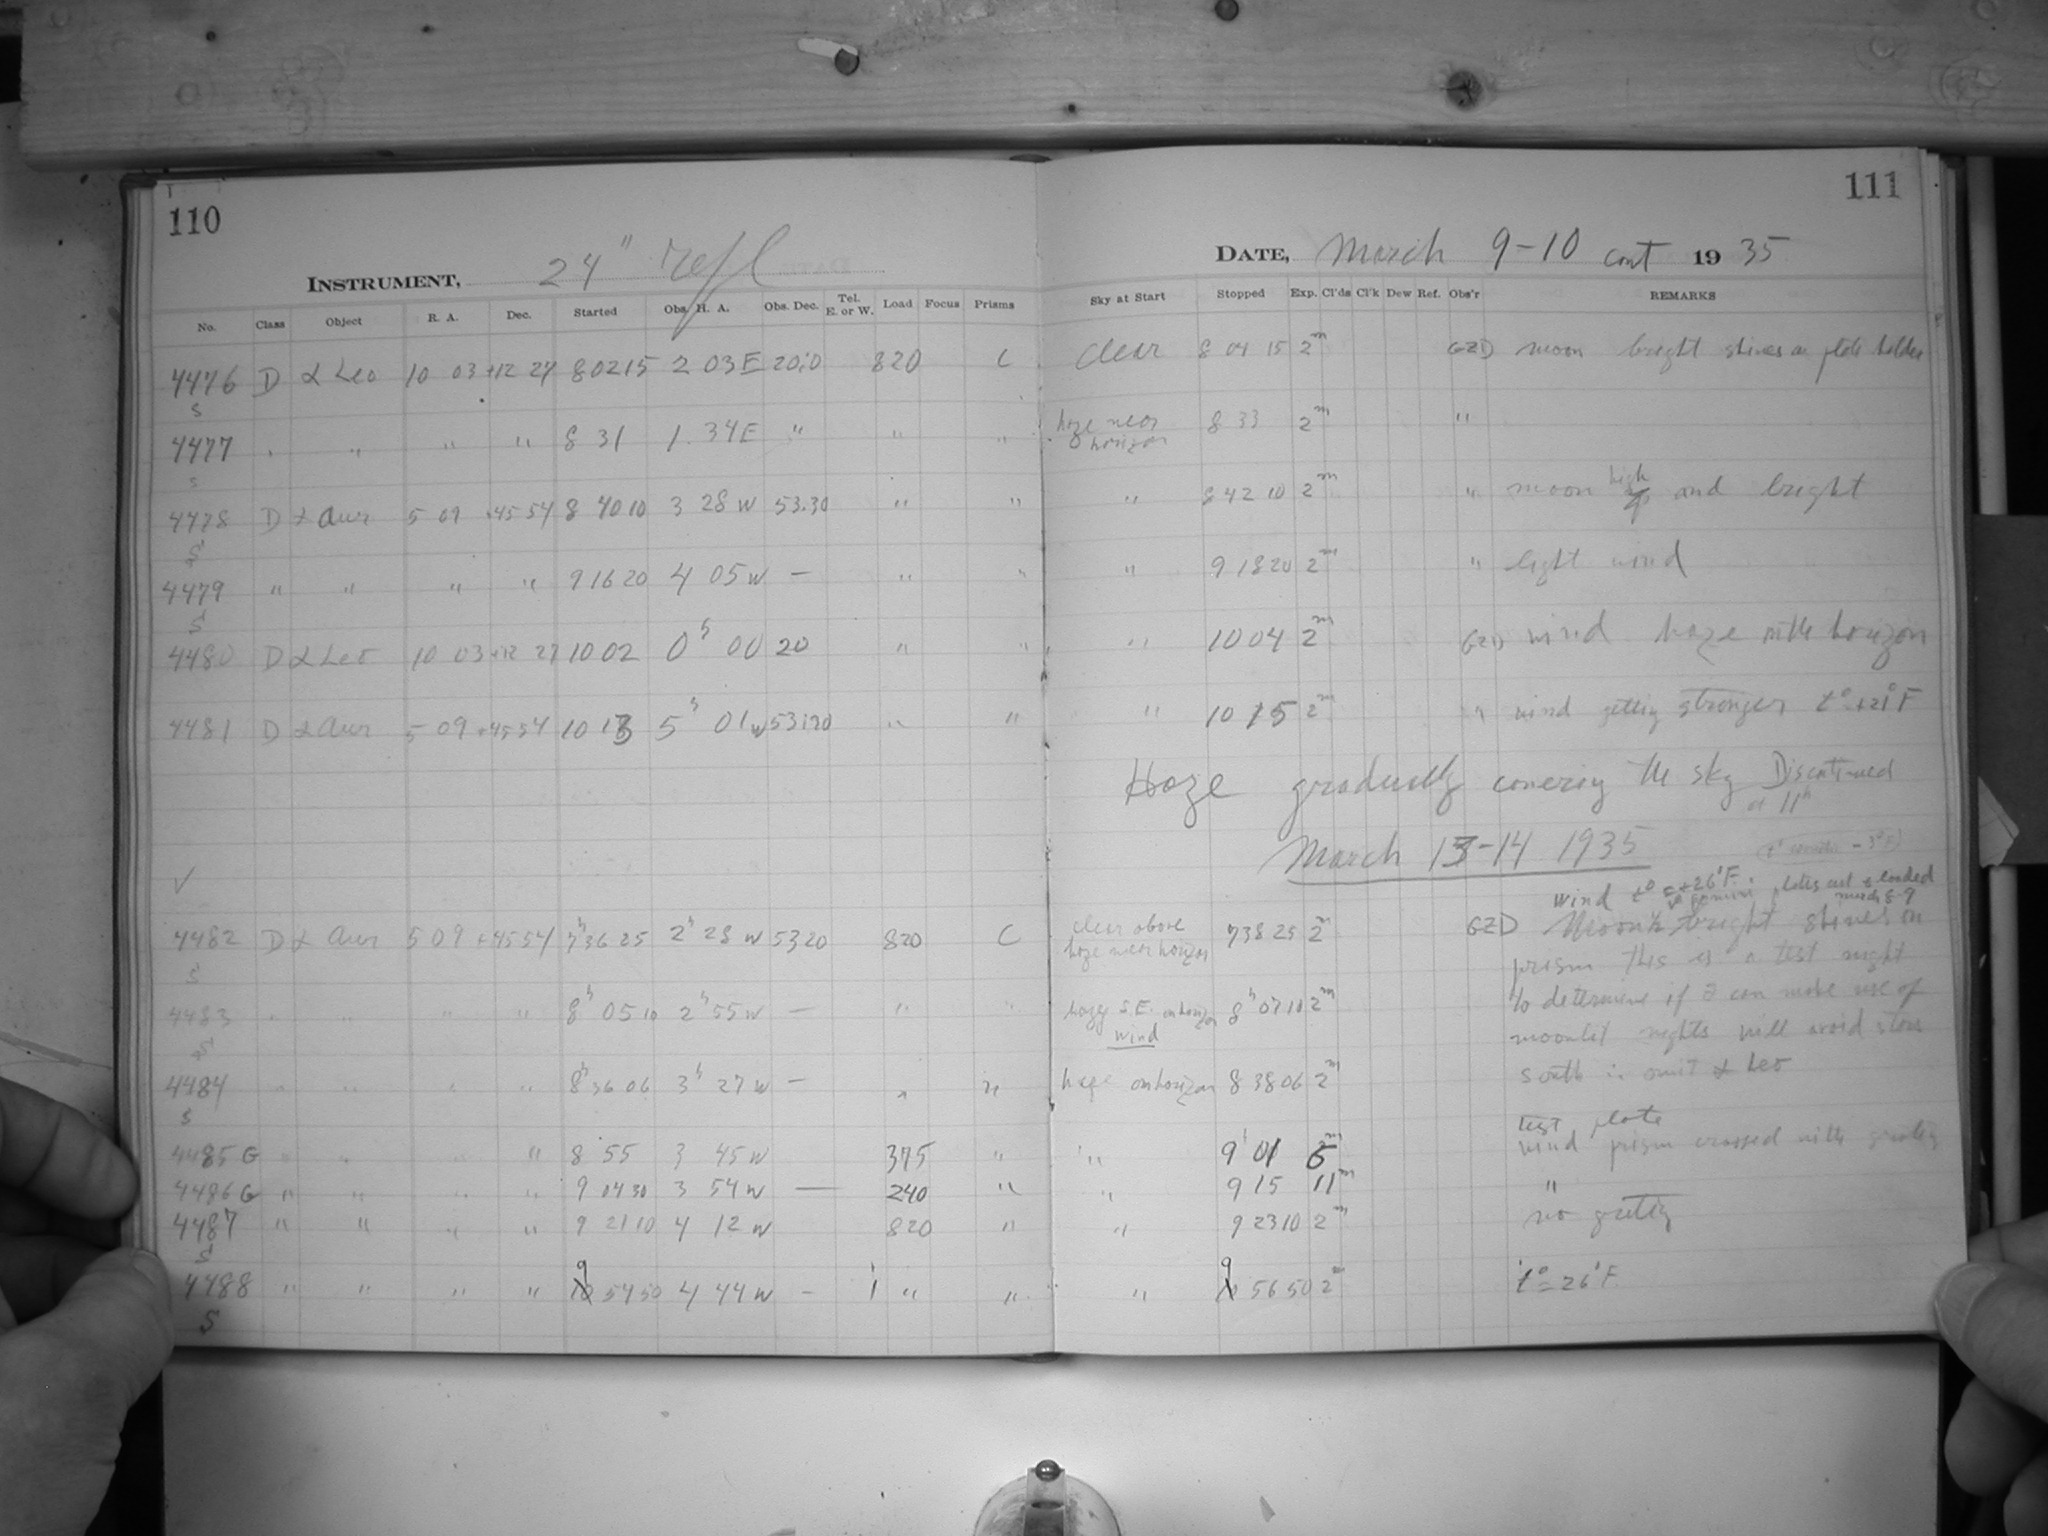 110
111
INSTRUMENT, 24" refl
DATE, March 9-10 cont 1935
No. Class Object R. A. Dec. Started Obs. H. A. Obs. Dec. Tel. E. or W. Load Focus Prisms Sky at Start Stopped Exp. Cl'ds Cl'k Dew Ref. Obs'r REMARKS
4476 D α Leo 10 03 +12 27 8 02 15 2 03 E 20.0 820 C clear 8 04 15 2m GZD moon bright shines on plate holder
s
4477 " " " " 8 31 1 34 E " " " haze near horizon 8 33 2m "
s
4478 D α Aur 5 09 +45 54 8 40 10 3 28 W 53.30 " " " 8 42 10 2m " moon high and bright
s
4479 " " " " 9 16 20 4 05 W — " " " 9 18 20 2m " light wind
s
4480 D α Leo 10 03 +12 27 10 02 0h 00 20 " " " 10 04 2m GZD wind haze on the horizon
4481 D α Aur 5 09 +45 54 10 13 5h 01 W 53:20 " " " 10 15 2m " wind getting stronger t° +21°F
Haze gradually covering the sky Discontinued
at 11h
March 13-14 1935
✓
wind t° = +26°F. plates cut & loaded
march 8-9
4482 D α Aur 5 09 +45 54 7h 36 25 2h 28 W 53 20 820 C clear above haze near horizon 7 38 25 2m GZD Moon is bright shines on
s
prism this is a test night
4483 " " " " 8h 05 10 2h 55 W — " " hazy S.E. on horizon wind 8h 07 10 2m to determine if I can make use of
s
moonlit nights will avoid stars
4484 " " " " 8h 36 06 3h 27 W — " " haze on horizon 8 38 06 2m south i. omit α Leo
s
test plate
4485 G " " " " 8 55 3 45 W 375 " " 9h 01 6m wind prism crossed with grating
4486 G " " " " 9 04 30 3 54 W — 240 " " 9 15 11m "
4487 " " " " 9 21 10 4 12 W 820 " " 9 23 10 2m no grating
s
4488 " " " " 9 54 50 4 44 W — " " " 9 56 50 2m t° = 26°F.
s